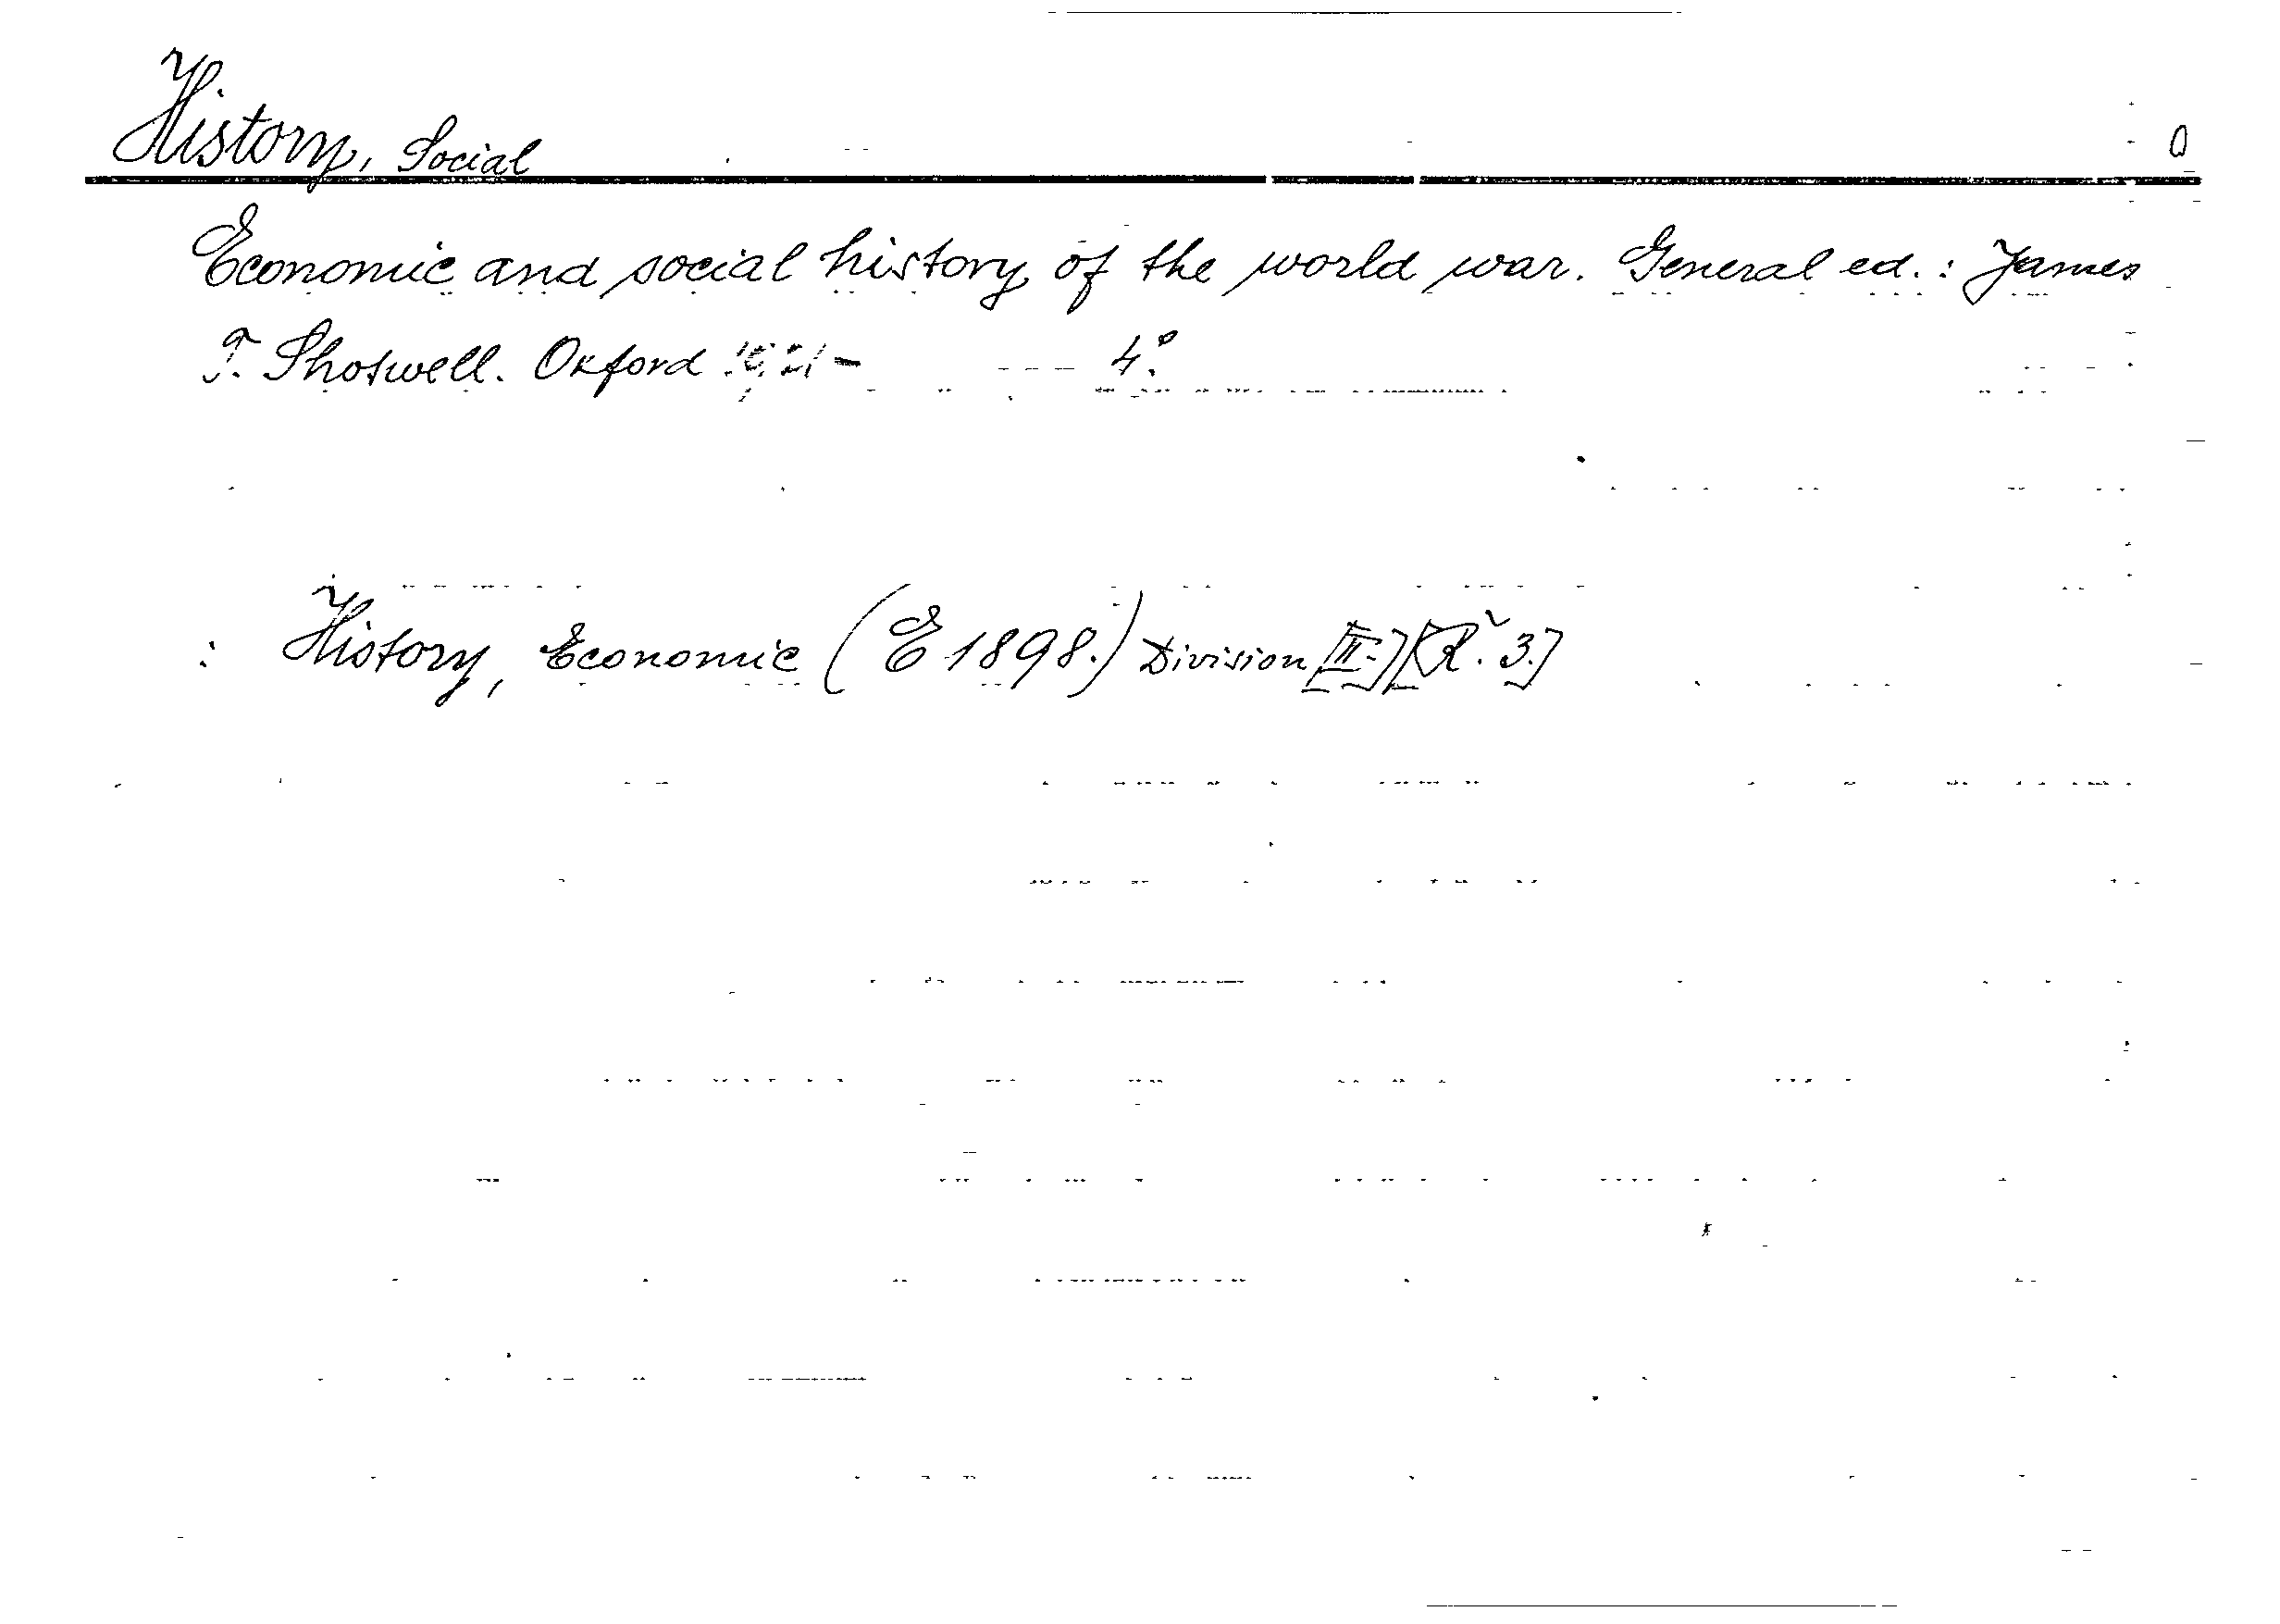 History, Social 0
Economic and social history of the world war. General ed.: James
T. Shotwell. Oxford 1921- 4°.
: History, Economic (E 1898.) Division [II-][R. 3.]